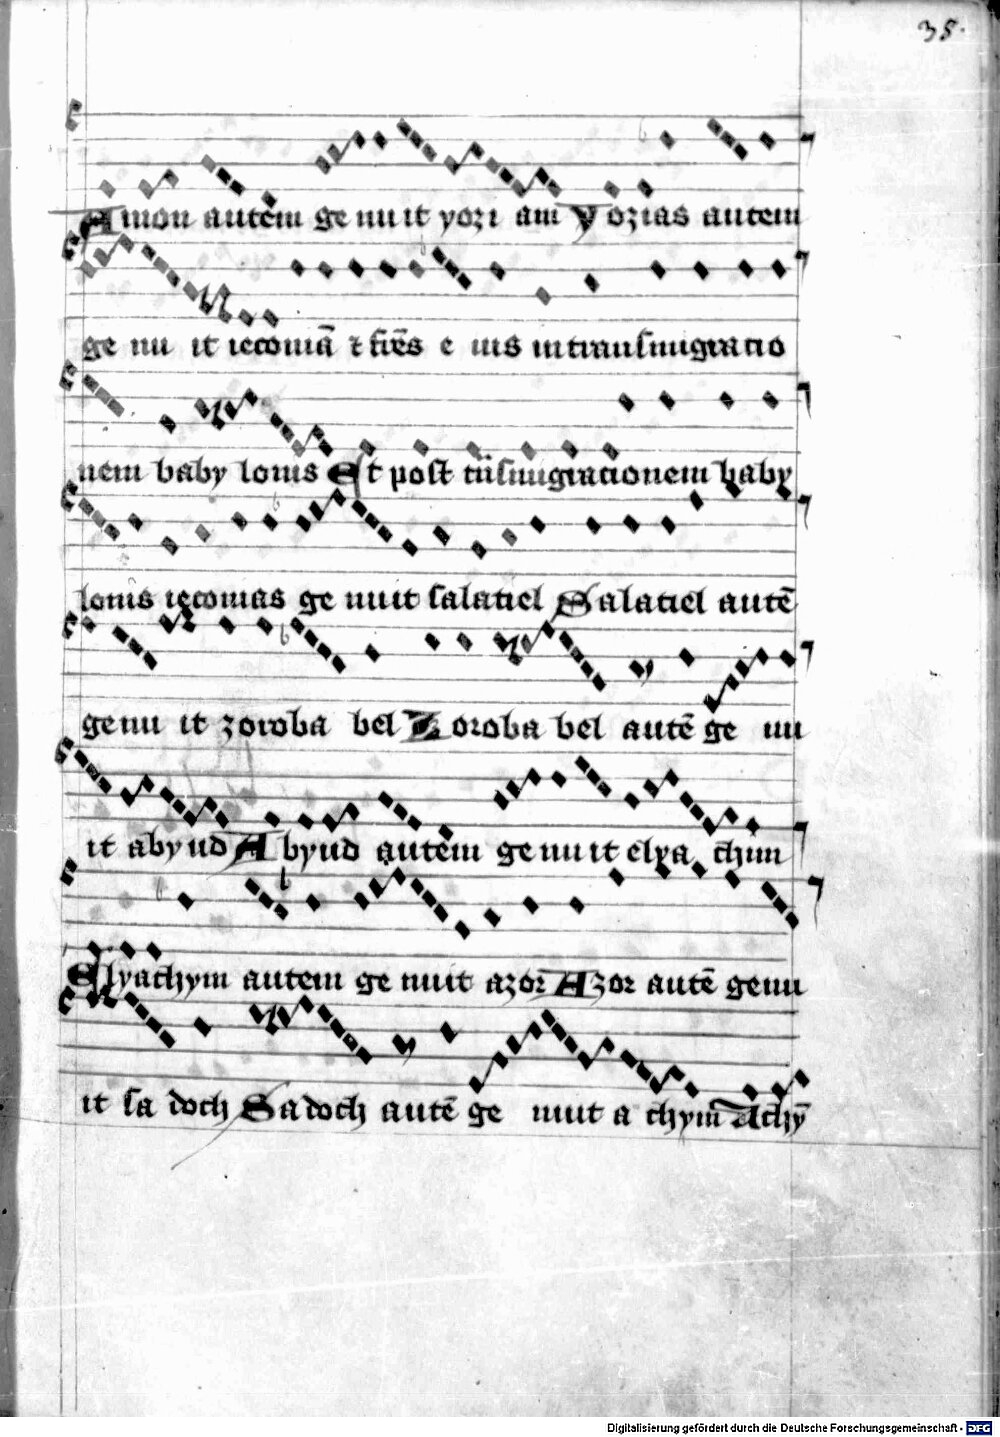 38.
Amon autem ge nu it yozi am Yozias autem
ge nu it ieconiā ⁊ fr̄es e ius in transmigracio
nem baby lonis Et post trāsmigracionem baby
lonis ieconias ge nuit salatiel Salatiel autē
ge nu it zoroba bel Zoroba bel autē ge nu
it aby ud Abyud autem ge nu it elya chim
Elyachym autem ge nuit azor Azor autē genu
it sa doch Sadoch autē ge nuit a chym Achȳ
Digitalisierung gefördert durch die Deutsche Forschungsgemeinschaft - DFG